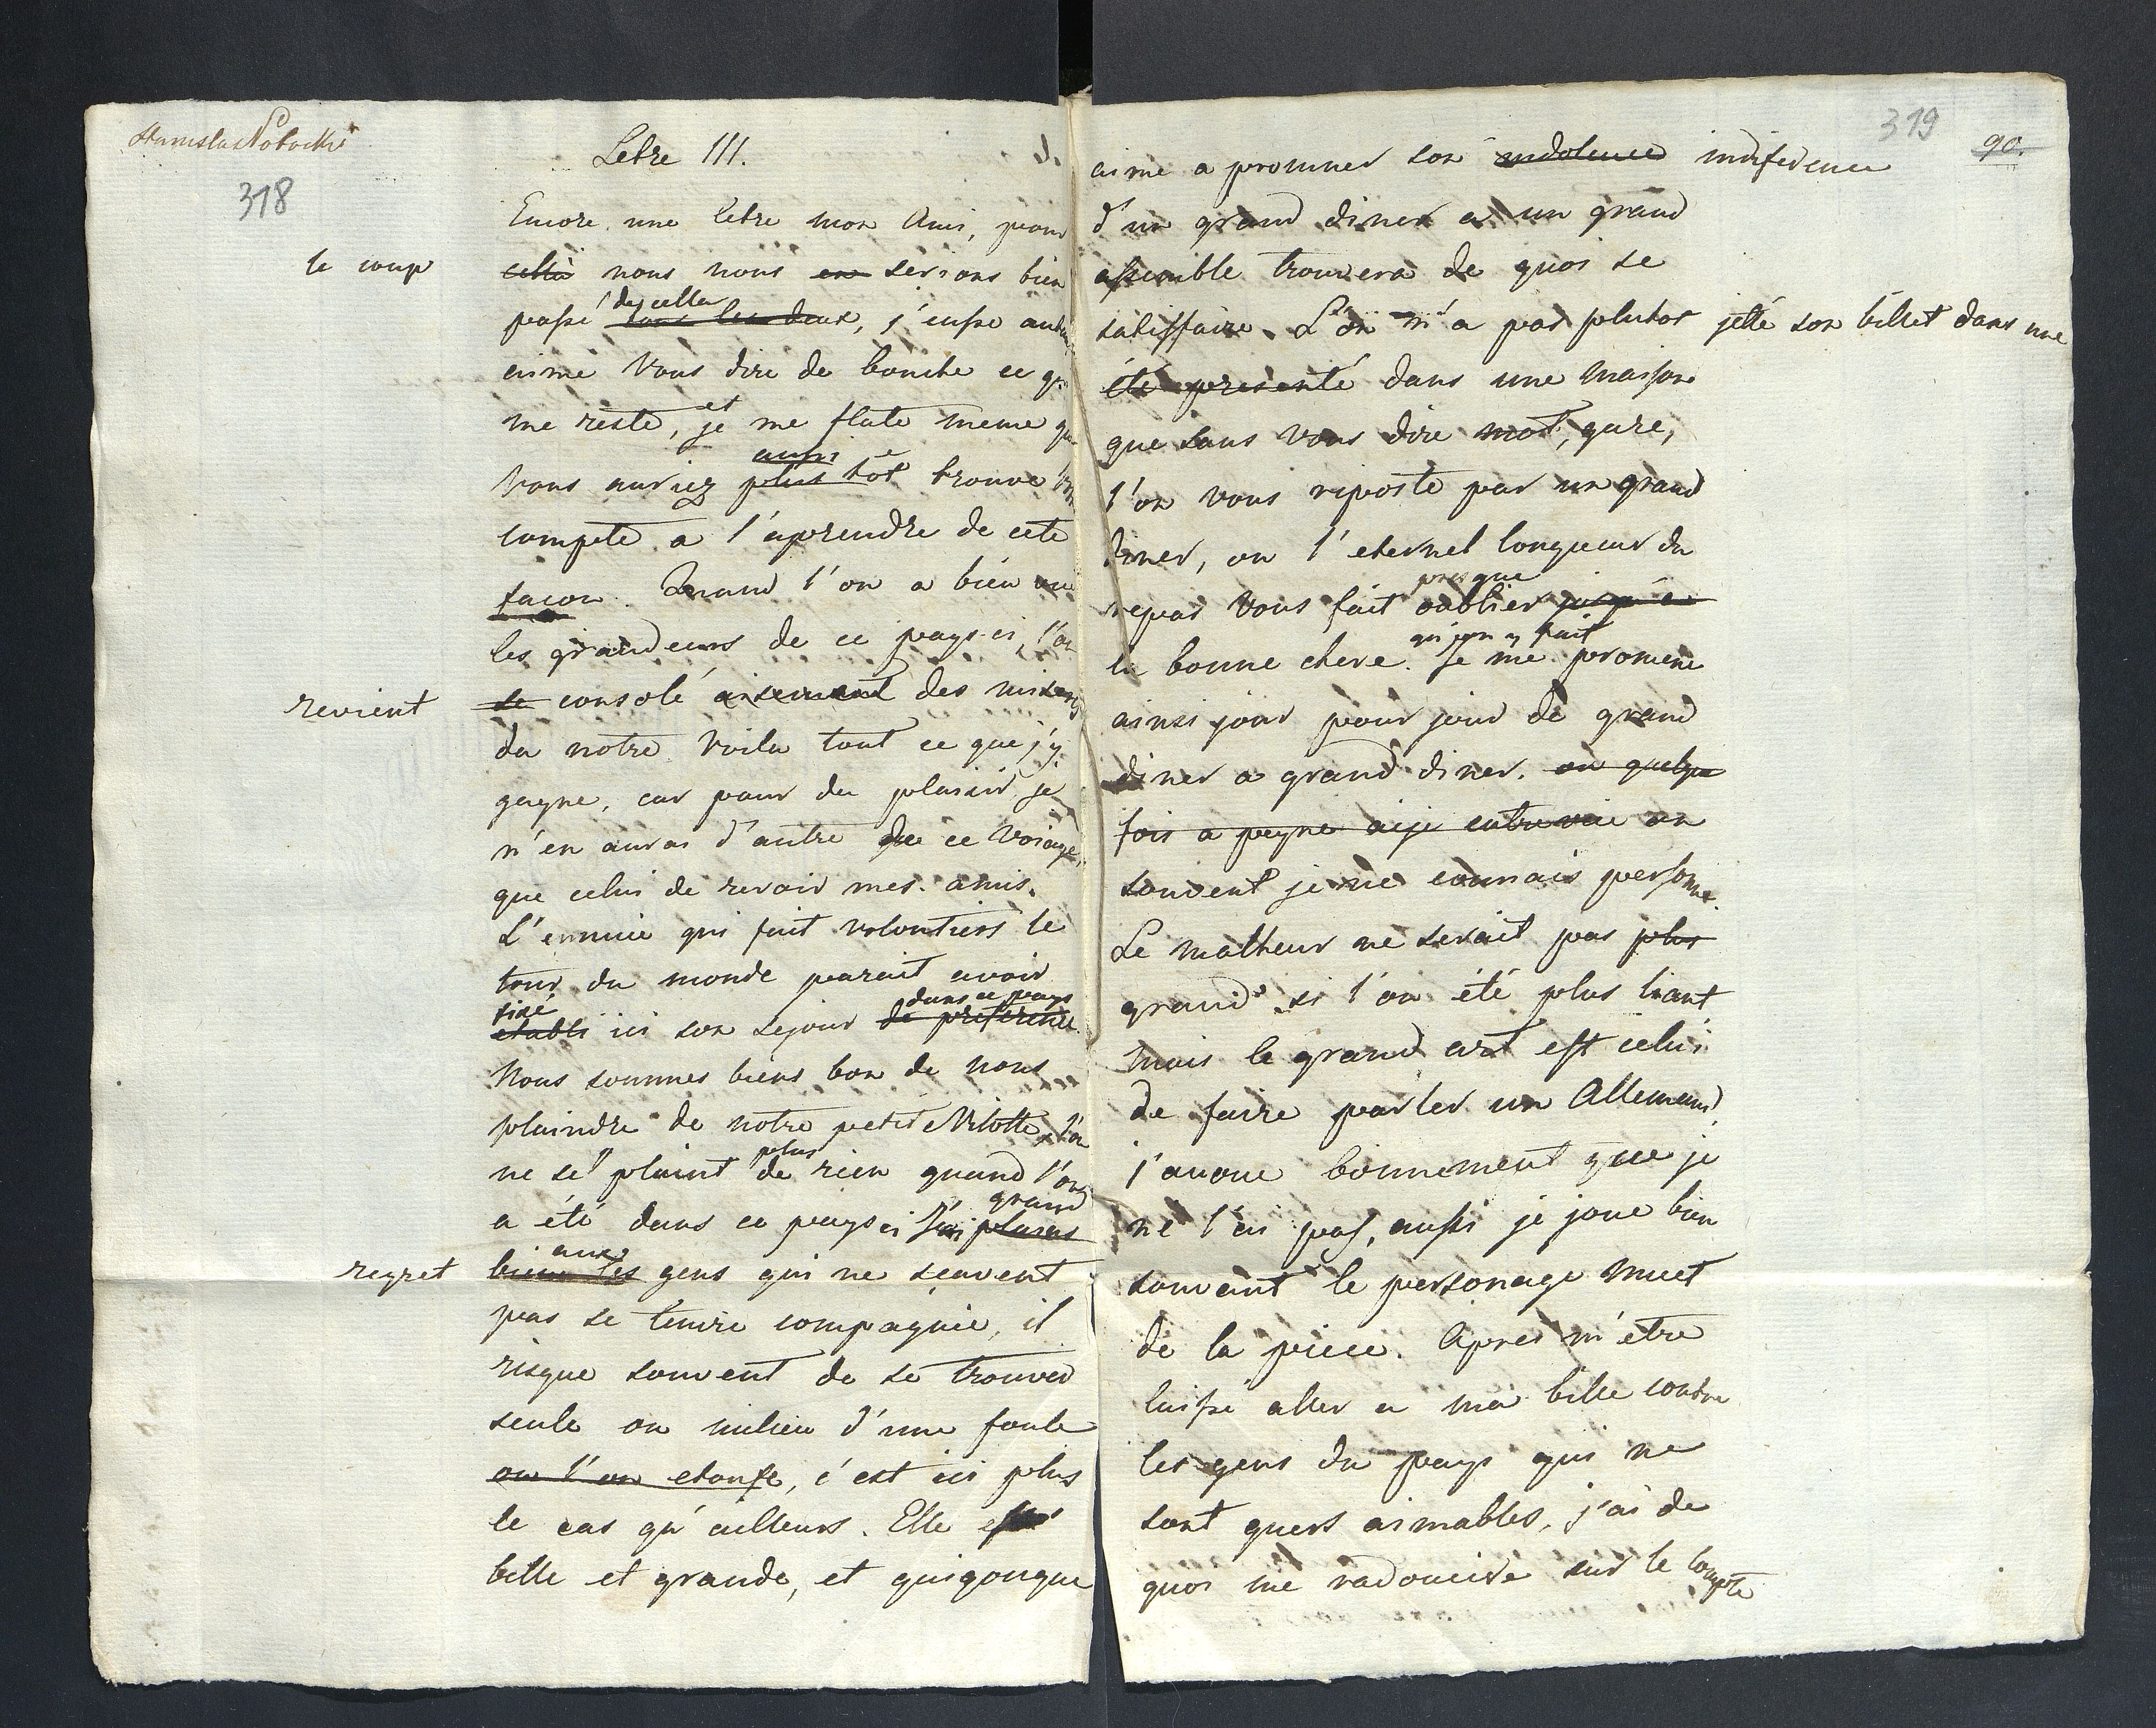 Stanislas Potocki
318
Letre III.
Encore une letre mon Ami, pour
le coup
cella nous nous en serions bien
de cella
passé tous les deux, j'eusse autant
aimé vous dire de bouche ce qui
me reste, et je me flate meme que
aussi
vous auriez plus tôt trouvé votre
compte a l'aprendre de cete
facon. Quand l'on a bien vu
les grandeurs de ce pays-ci, l'on
revient
se console aisement des miseres
du notre voila tout ce que j'y
gagne, car pour du plaisir je
n'en aurai d'autre de ce voiage,
que celui de revoir mes amis.
L'ennuie qui fait volontiers le
tour du monde parait avoir
fixé dans ce pays
etabli ici son sejour de preference
Nous sommes biens bon de nous
plaindre de notre petit Vilotte, l'on
plus
ne se plaint de rien quand l'on
grand
a été dans ce pays ci J'ai plusieurs
aux
regret
bien les gens qui ne scavent
pas se tenire compagnie, il
risque souvent de se trouver
seule au milieu d'une foule
ou l'on etoufe, c'est ici plus
le cas qu'ailleurs. Elle est
belle et grande, et quiqonque
319
90.
aime a promner son indolence indiference
d'un grand diner a un grand
assemble trouvera de quoi se
satisffaire. L'on n'a pas plutot jetté son billet dans une
été presenté dans une maison
que sans vous dire mot, gare,
l'on vous riposte par un grand
diner, ou l'eternel longueur du
presque
repas vous fait oublier jusqu'a
qu'on y fait
la bonne chere. Je me promene
ainsi jour pour jour de grand
diner a grand diner. ou quelque
fois a peyne aije entrevue ou
souvent je ne connais personne.
Le malheur ne serait pas plus
grand si l'on été plus liant
mais le grand art est celui
de faire parler un Allemand
j'avoue bonnement que je
ne l'ai pas, aussi je joue bien
souvent le personage muet
de la piece. Apres m'etre
laissé aller a ma bille contre
les gens du pays qui ne
sont guers aimables, j'ai de
quoi me radoucire sur le compte